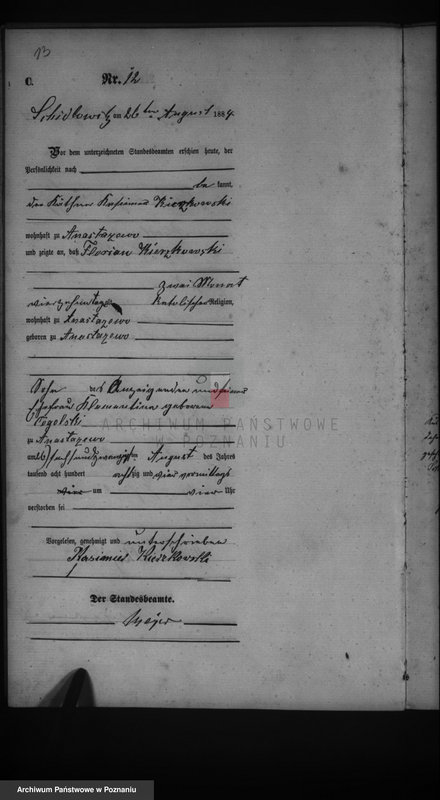 13
C.
Nr. 12
Schidlowitz am 26 ten August 1884.
Vor dem unterzeichneten Standesbeamten erschien heute, der
Persönlichkeit nach
be kannt,
der Käthner Kasimir Kierzkowski
wohnhaft zu Anastazewo
und zeigte an, daß Florian Kierzkowski
zwei Monat
vierzehn Tage katolischer Religion,
wohnhaft zu Anastazewo
geboren zu Anastazewo
Sohn des Anzeigenden und seiner
Ehefrau Klementine geborene
zu Anastazewo
am 26 /sechsundzwanzigsten August des Jahres
tausend acht hundert achtzig und vier vormittags
vier um vier Uhr
verstorben sei
Vorgelesen, genehmigt und unterschrieben
Kasimir Kierzkowski
Der Standesbeamte.
ARCHIWUM PAŃSTWOWE
W POZNANIU
Archiwum Państwowe w Poznaniu